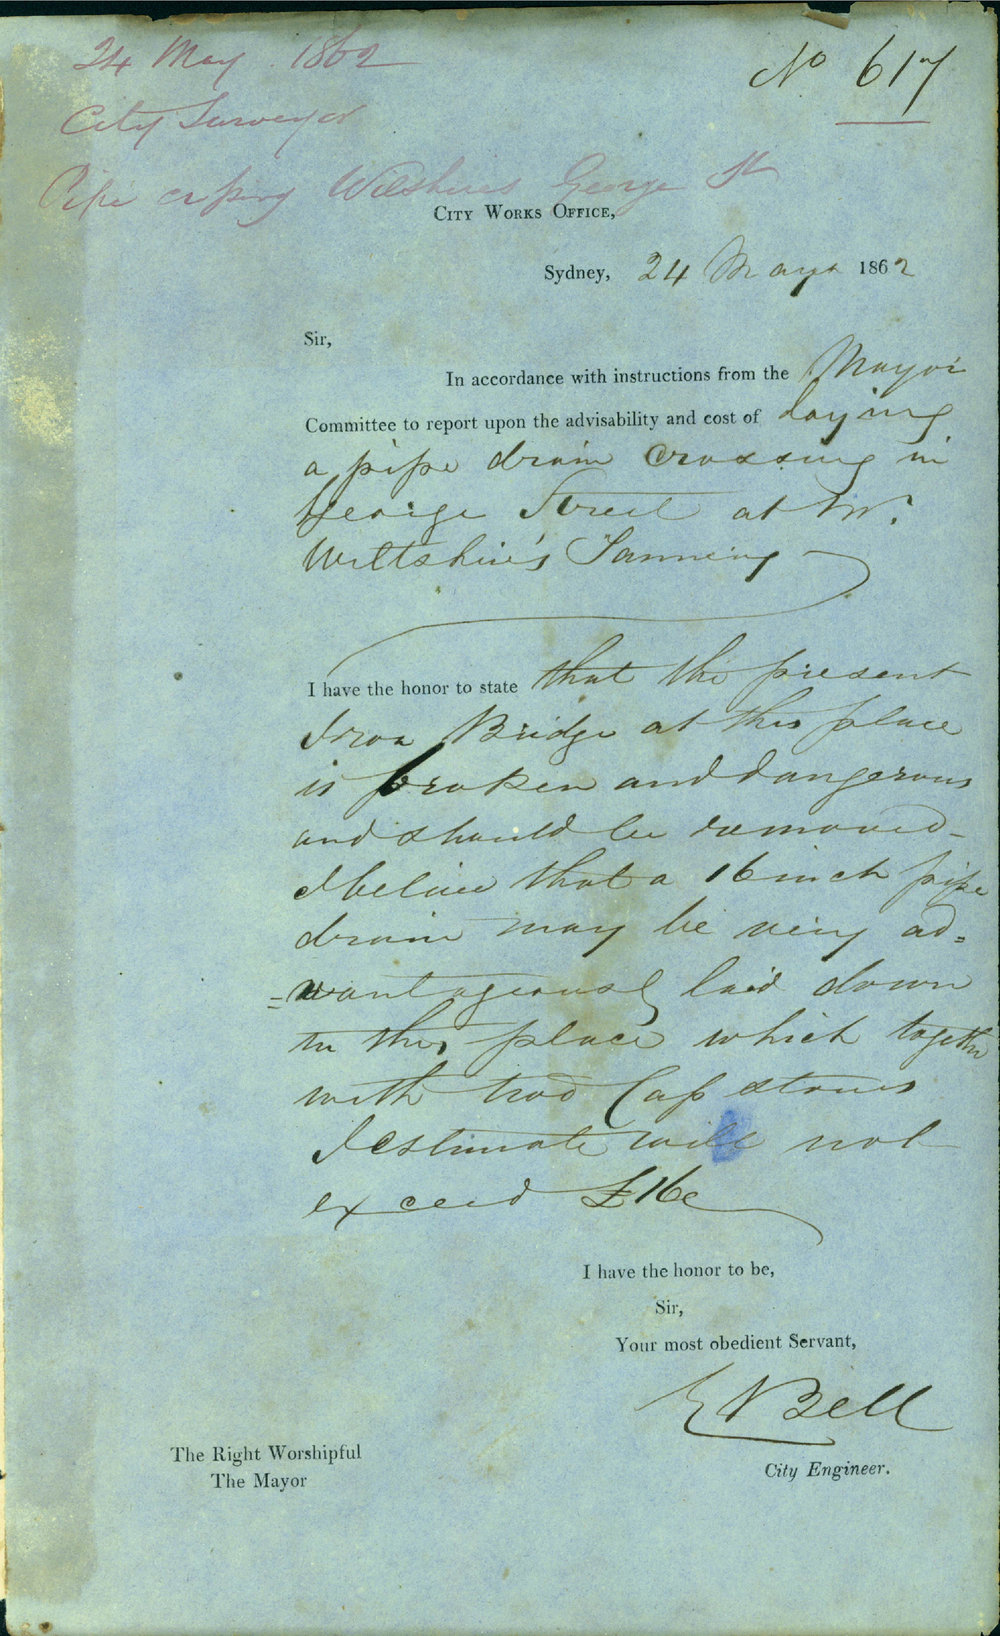 24 May 1862
No 617
City Surveyor
Pipe crossing Wilshires George St
CITY WORKS OFFICE,
Sydney, 24 May 1862
Sir,
In accordance with instructions from the Mayor
Committee to report upon the advisability and cost of laying
a pipe drain crossing in
George Street at Mr.
Wiltshire's Tannery
I have the honor to state that the present
Iron Bridge at this place
is broken and dangerous
and should be removed
I believe that a 16 inch pipe
drain may be very ad=
=vantageously laid down
in this place which together
with two Cap stones
I estimate will not
exceed £16
I have the honor to be,
Sir,
Your most obedient Servant,
E Bell
City Engineer.
The Right Worshipful
The Mayor